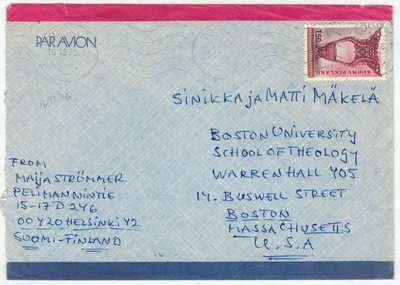 PAR AVION
1,50
SUOMI-FINLAND
SINIKKA JA MATTI MÄKELÄ
BOSTON UNIVERSITY
SCHOOL OF THEOLOGY
WARREN HALL 405
14. BUSWELL STREET
BOSTON
MASSACHUSETTS
U.S.A
FROM
MAIJA STRÖMMER
PELIMANNINTIE
15-17 D 246
00420 HELSINKI 42
SUOMI-FINLAND